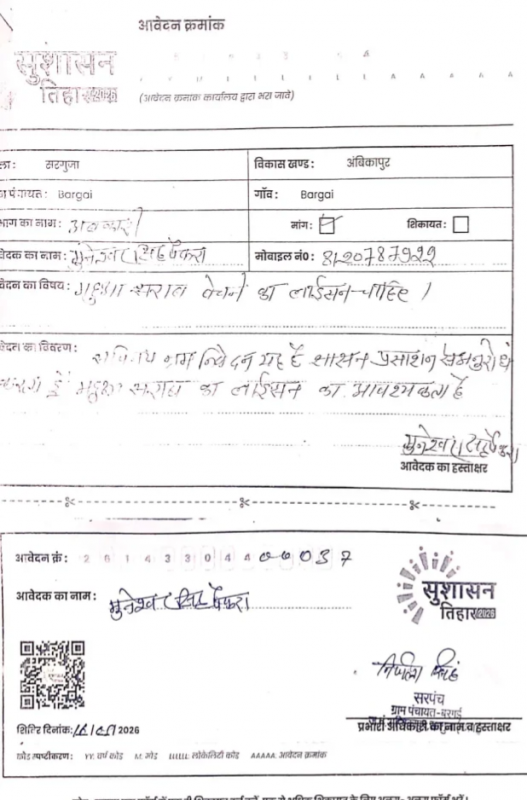 आवेदन क्रमांक
सुशासन
तिहार
(आवेदन क्रमांक कार्यालय द्वारा भरा जावे)
ला: सरगुजा विकास खण्ड: अंबिकापुर
पंचायत: Bargai गाँव: Bargai
भाग का नाम: आबकारी मांग: शिकायत:
वेदक का नाम: मुनेश्वर सिंह पैकरा मोबाइल नं0: 8120787922
वेदन का विषय: महुआ सराब बेचने का लाईसन चाहिए।
वेदन का विवरण: सविनय नम्र निवेदन यह है शासन प्रसाशन
महुआ सराब का लाईसन का आवश्यकता है
मुनेश्वर सिंह पैकरा
आवेदक का हस्ताक्षर
आवेदन क्रं: 2 6 1 4 3 3 0 4 4 0 0 0 3 7
सुशासन
तिहार 2026
आवेदक का नाम: मुनेश्वर सिंह पैकरा
सरपंच
ग्राम पंचायत-बरगई
शिविर दिनांक: 2026 प्रभारी अधिकारी का नाम व हस्ताक्षर
कोड स्पष्टीकरण: YY: वर्ष कोड M: मोड LLLLLL: लोकेलिटी कोड AAAAA: आवेदन क्रमांक